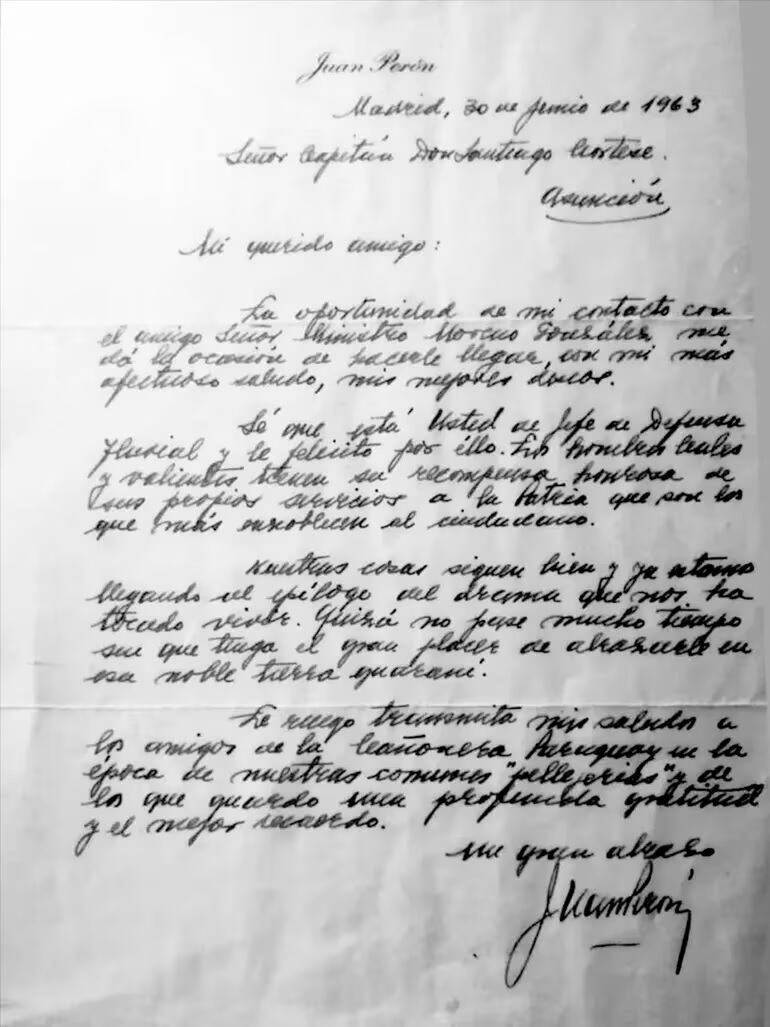 Juan Perón
Madrid, 30 de junio de 1963
Señor Capitán Don Santiago Cortese.
Asunción
Mi querido amigo:
La oportunidad de mi contacto con
el amigo Señor Ministro Moreno González, me
dá la ocasión de hacerle llegar, con mi más
afectuoso saludo, mis mejores deseos.
Sé que está Usted de Jefe de Defensa
Fluvial y le felicito por éllo. Los hombres leales
y valientes tienen su recompensa honrosa de
sus propios servicios a la Patria que son los
que más ennoblecen al ciudadano.
Nuestras cosas siguen bien y ya estamos
llegando al epílogo del drama que nos ha
tocado vivir. Quizá no pase mucho tiempo
sin que tenga el gran placer de abrazarle en
esa noble tierra guaraní.
Le ruego transmita mis saludos a
los amigos de la Cañonera Paraguay en la
época de nuestras comunes "pellejerías" y de
los que guardo una profunda gratitud
y el mejor recuerdo.
Un gran abrazo
Juan Perón